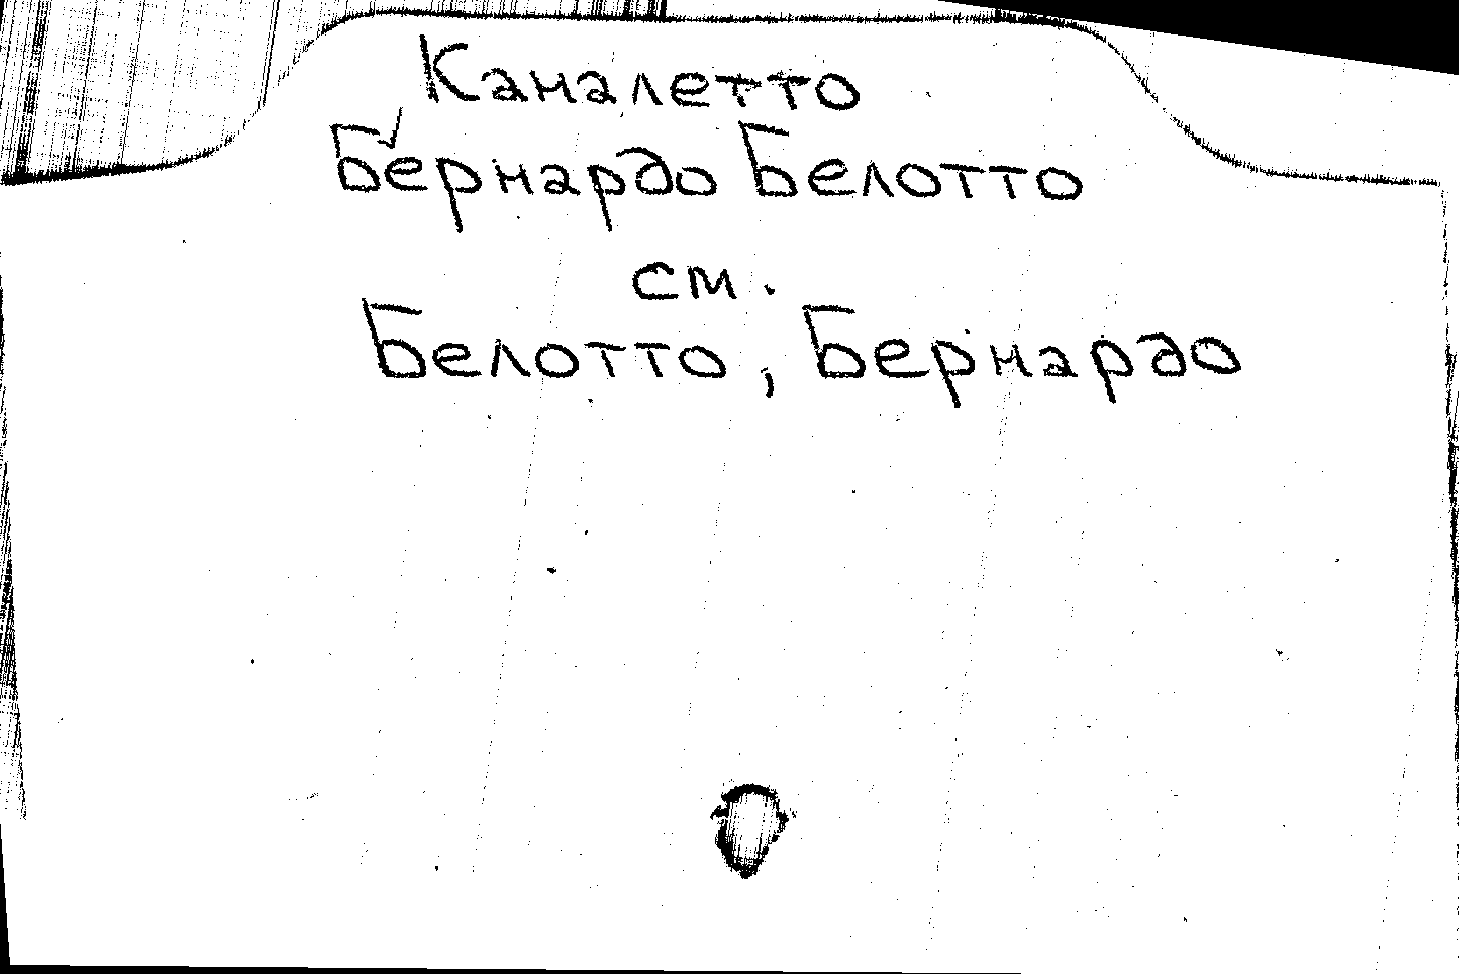 Каналетто
Бернардо Белотто
см.
Белотто, Бернардо